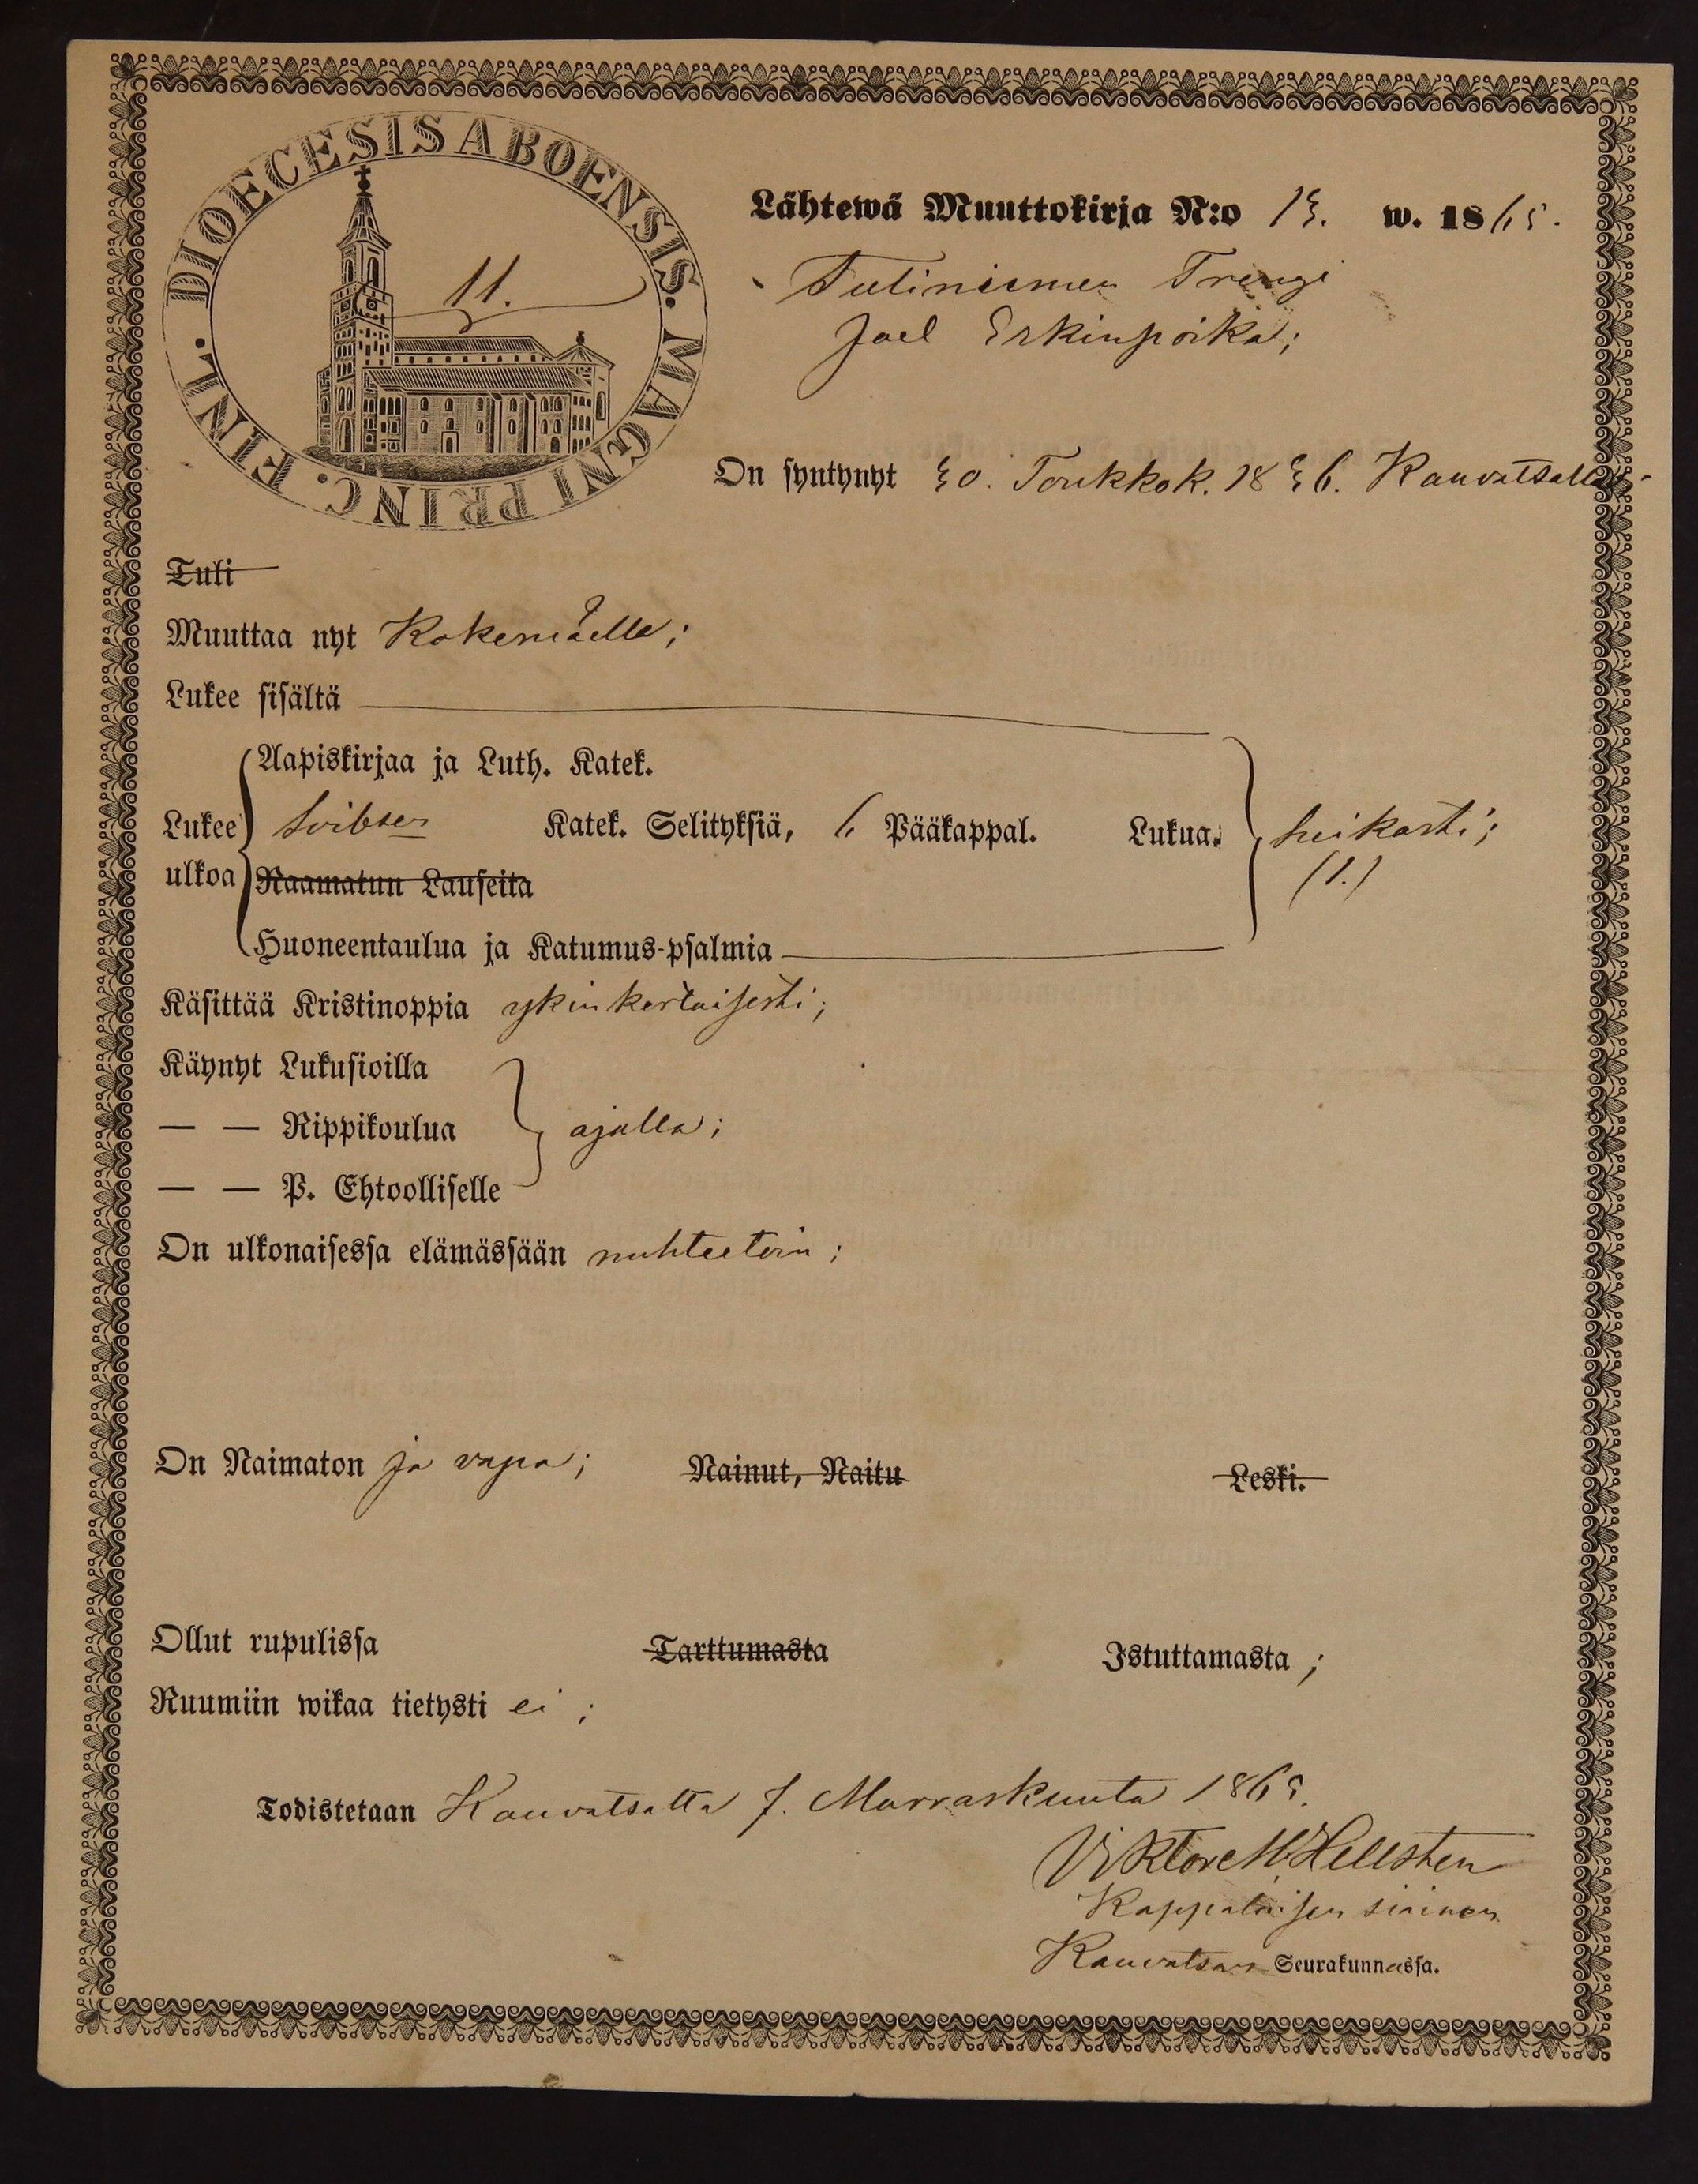 DIOECESIS ABOENSIS. MAGNI PRINC. FINL.
11.
Lähtewä Muuttokirja N:o 13. w. 1865.
Trengi
Joel Erkinpoika;
On syntynyt 30. Toukkok. 1836. Kauvatsalla
Tuli
Muuttaa nyt Kokemäelle;
Lukee sisältä
Aapiskirjaa ja Luth. Katek.
Lukee ulkoa
Katek. Selityksiä, 6 Pääkappal. Lukua. heikosti;
(1.)
Raamatun Lauseita
Huoneentaulua ja Katumus-psalmia
Käsittää Kristinoppia yksinkertaisesti;
Käynyt Lukusioilla
— — Rippikoulua ajalla;
— — P. Ehtoolliselle
On ulkonaisessa elämässään nuhteetoin;
On Naimaton ja vapa; Nainut, Naitu Leski.
Ollut rupulissa Tarttumasta Istuttamasta;
Ruumiin wikaa tietysti ei;
Todistetaan Kauvatsalta 7. Marraskuuta 1865.
Viktor M Hellsten
Kappalaisen siainen
Kauvatsan Seurakunnassa.